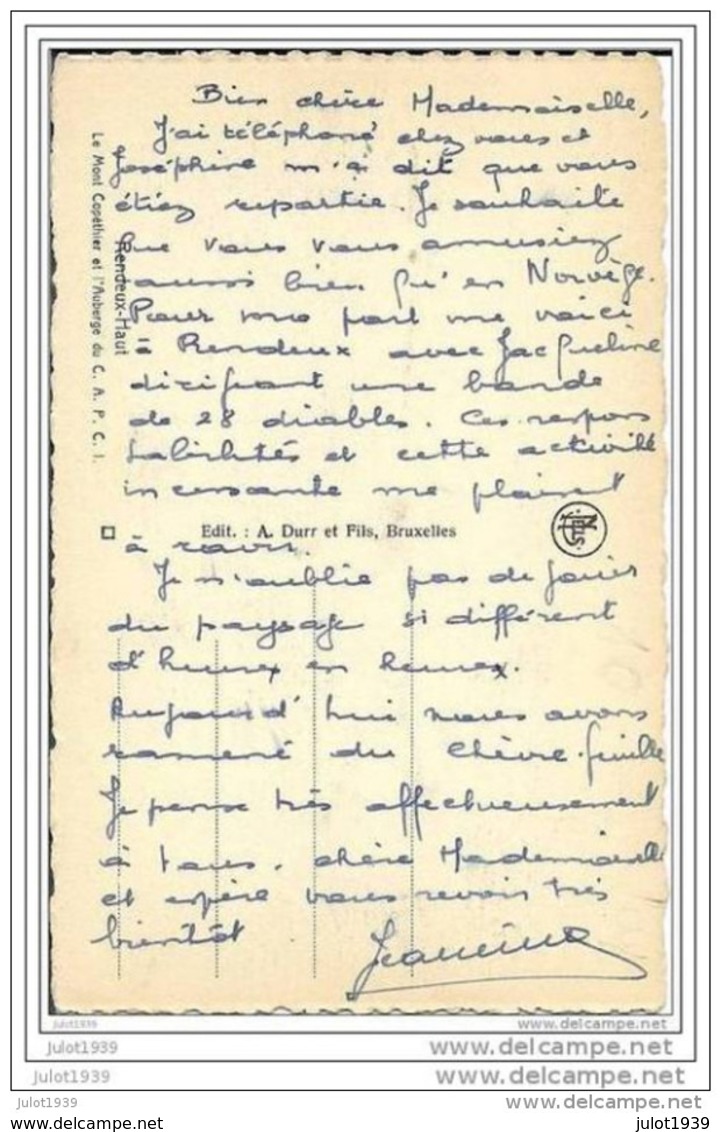 Bien chère Mademoiselle,
J'ai téléphoné chez vous et
Joséphine m'a dit que vous
étiez repartie. Je souhaite
que vous vous amusiez
aussi bien qu'en Norvège.
Pour ma part me voici
à Rendeux avec Jacqueline
dirigeant une bande
de 28 diables. Ces respon
sabilités et cette activité
incessante me plaisent
à ravir.
Je n'oublie pas de jouir
du paysage si différent
d'heures en heures.
Aujourd'hui nous avons
ramené du chèvre-feuille
Je pense très affectueusement
à tous, chère Mademoiselle
et espère vous revoir très
bientôt
Jeannine
Rendeux-Haut
Le Mont Copéthier et l'Auberge du C. A. P. C. I.
Edit. : A. Durr et Fils, Bruxelles
NELS
julot1939 www.delcampe.net
julot1939 www.delcampe.net
julot1939 www.delcampe.net
julot1939 www.delcampe.net
julot1939 julot1939